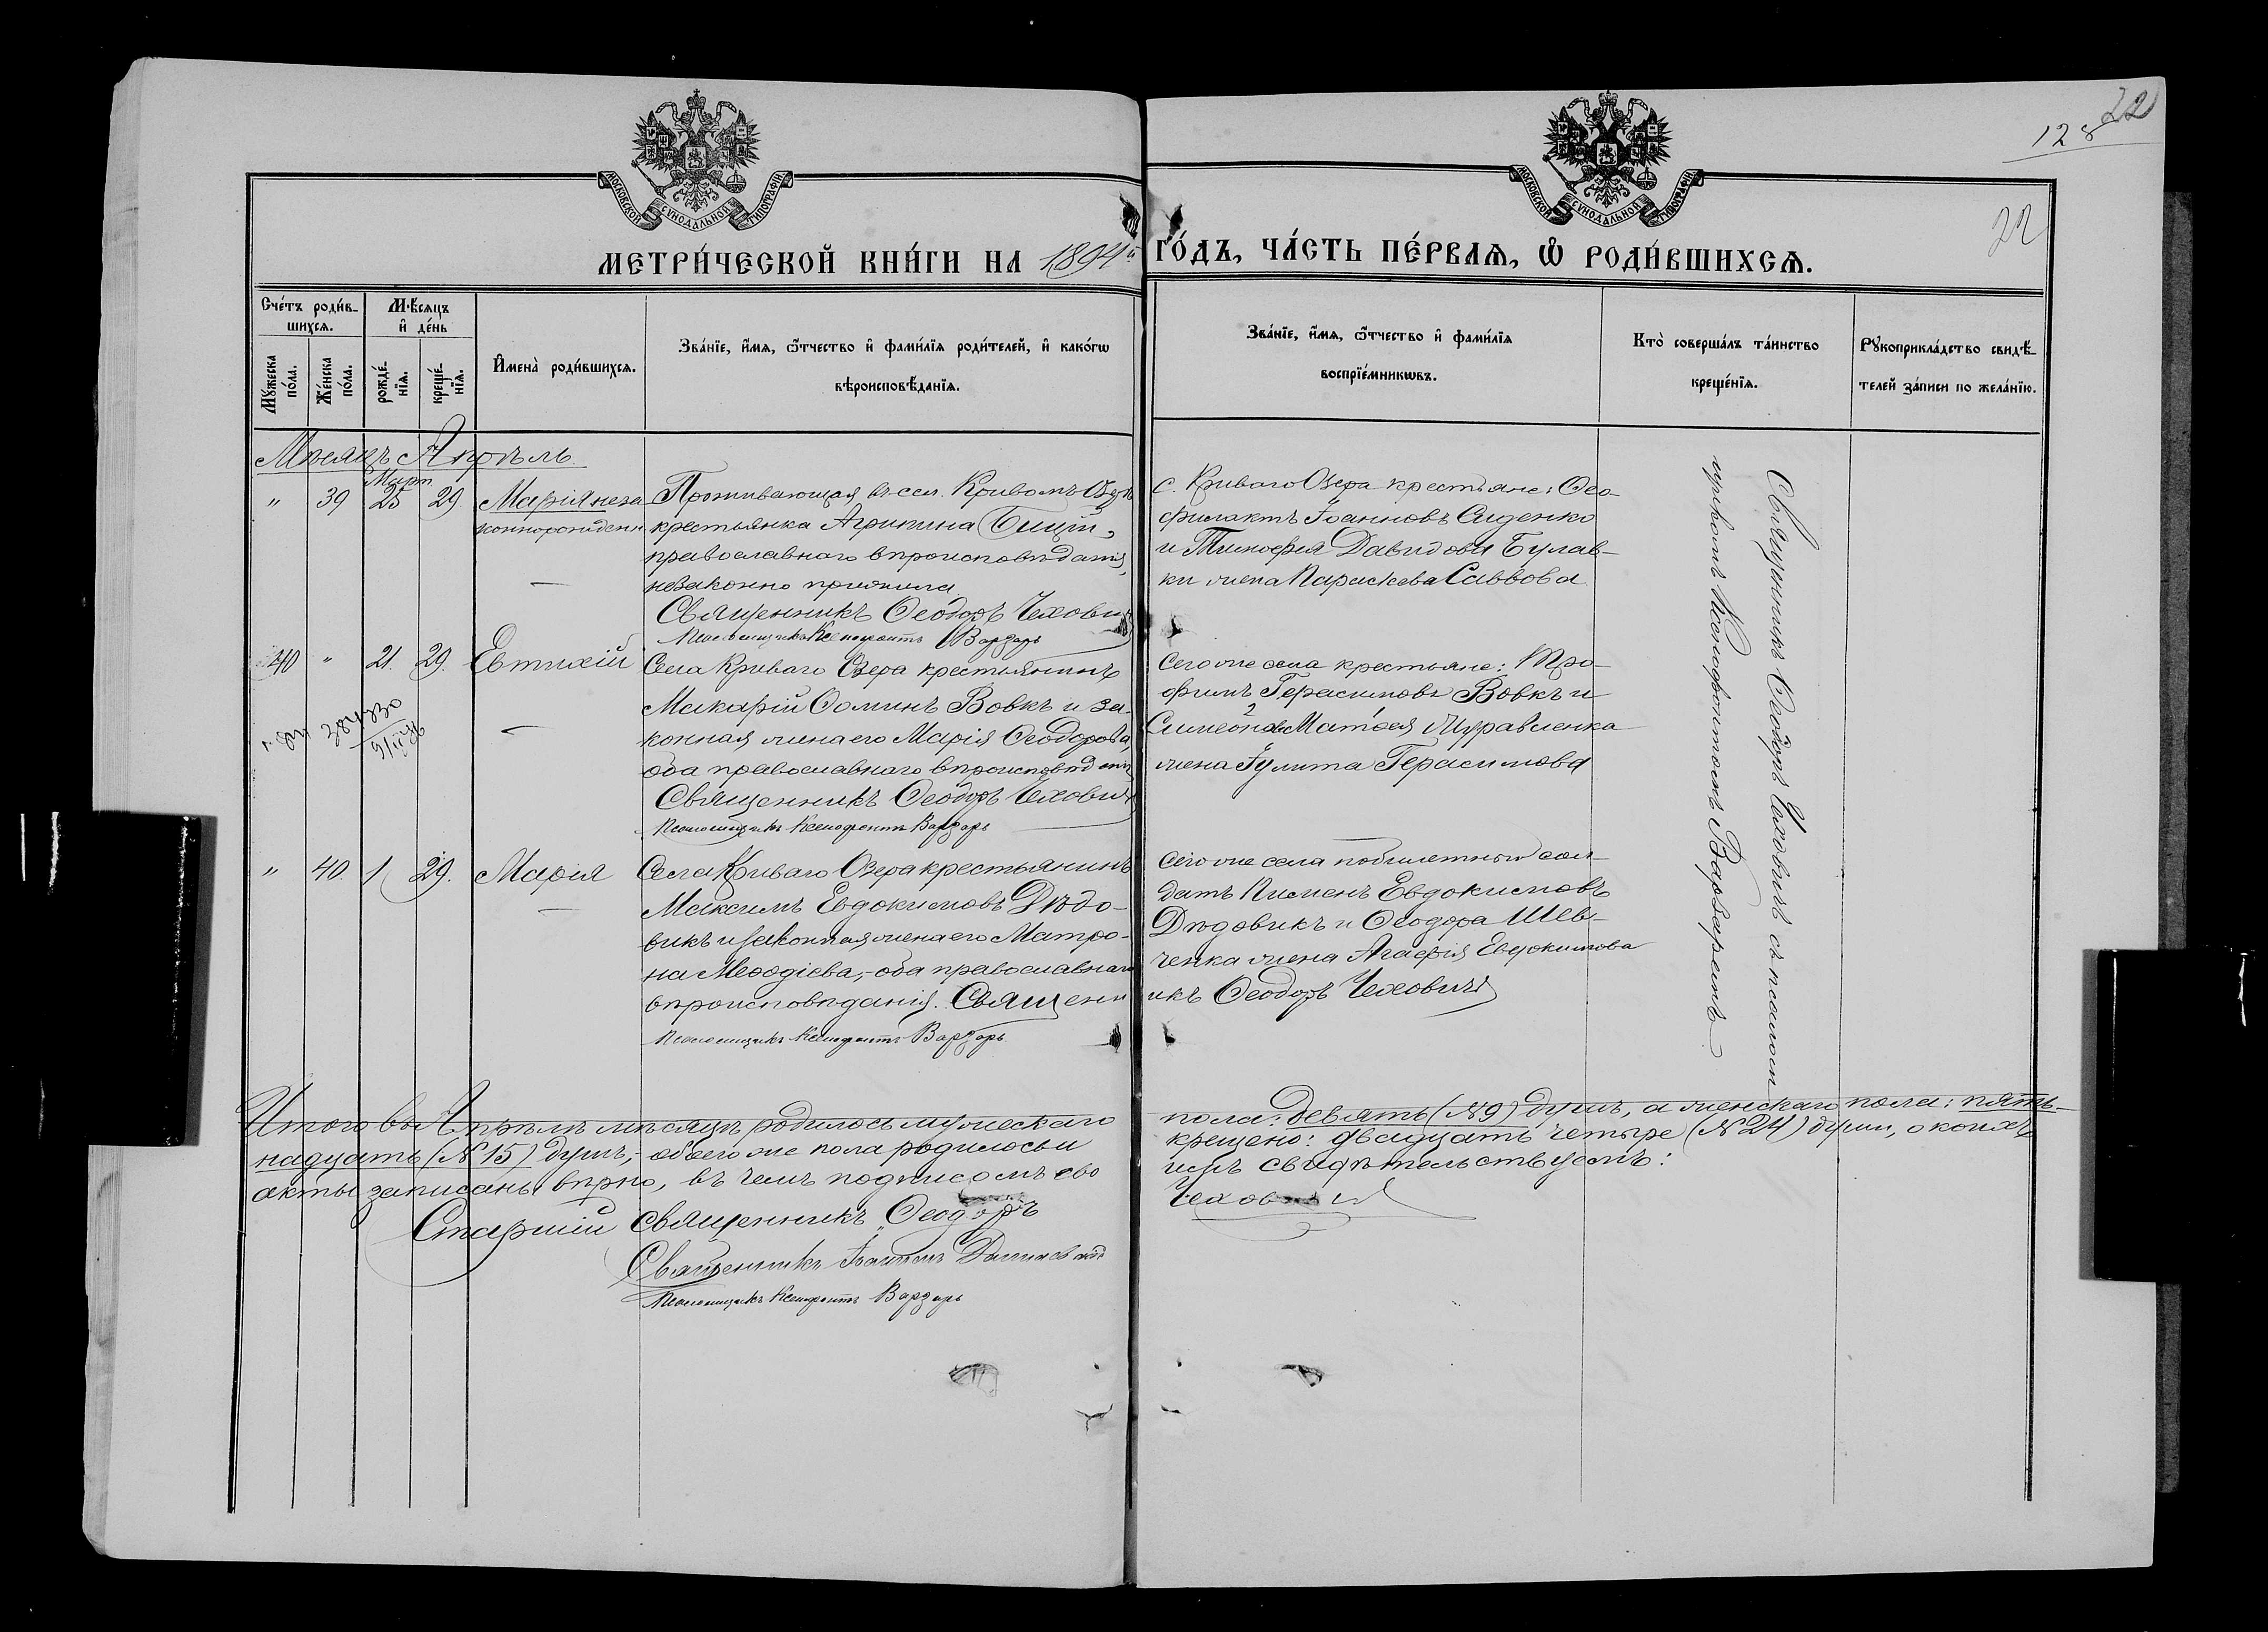 МОСКОВСКОЙ СѴНОДАЛЬНОЙ ТИПОГРАФІИ
МОСКОВСКОЙ СѴНОДАЛЬНОЙ ТИПОГРАФІИ
22
128
22
МЕТРИ́ЧЕСКОЙ КНИ́ГИ НА 1894й ГО́ДЪ, ЧА́СТЬ ПЕ́РВАѦ, Ѿ РОДИ́ВШИХСѦ.
Сче́тъ роди́в-
шихсѧ.
Мѣ́сѧцъ
и҆ де́нь
Мꙋ́жеска
по́ла.
Же́нска
по́ла.
рожде́-
нїѧ.
креще́-
нїѧ.
И҆мена̀ роди́вшихсѧ.
Зва́нїе, и҆́мѧ, ѻ҆́тчество и҆ фами́лїѧ роди́телей, и҆ како́гѡ
вѣроисповѣ́данїѧ.
Зва́нїе, и҆́мѧ, ѻ҆́тчество и҆ фами́лїѧ
воспрїе́мникѡвъ.
Кто̀ соверша́лъ та́инство
креще́нїѧ.
Рꙋкоприкла́дство свидѣ́-
телей за́писи по жела́нїю.
Мѣсяцъ Апрѣль
Март.
" 39 25 29. Марія неза-
коннорожден.
Проживающая въ сел. Кривомъ Озерѣ
крестьянка Агрипина Бицій,
православнаго вѣроисповѣданія,
незаконно прижила
Священникъ Ѳеодоръ Чеховичъ
Псаломщикъ Ксенофонтъ Варзарь
с. Криваго Озера крестьяне: Ѳео-
филактъ Іоанновъ Сиденко
и Тимоѳея Давидова Булав-
ки жена Параскева Саввова
40 " 21. 29. Евтихій
Села Криваго Озера крестьянинъ
Макарій Ѳоминъ Вовкъ и за-
конная жена его Марія Ѳеодорова,
оба православнаго вѣроисповѣданія
Священникъ Ѳеодоръ Чеховичъ
Псаломщикъ Ксенофонтъ Варзарь
Сего же села крестьяне: Тро-
фимъ Герасимовъ Вовкъ и
Матѳея Журавленка
жена Іулита Герасимова
" 40. 1 29. Марія
Села Криваго Озера крестьянинъ
Максимъ Евдокимовъ Дѣдо-
викъ и законная жена его Матро-
на Меѳодіева,-оба православнаго
вѣроисповѣданія. Священникъ Ѳеодоръ Чеховичъ
Псаломщикъ Ксенофонтъ Варзарь
Сего же села побилетный сол-
датъ Пименъ Евдокимовъ
Дѣдовикъ и Ѳеодора Шев-
ченка жена Агафія Евдокимова
Священникъ Ѳеодоръ Чеховичъ съ псаломщ
икомъ Ксенофонтомъ Варзаремъ
Итого въ Апрѣлѣ мѣсяцѣ родилось мужескаго пола: девять (№ 9) душъ, а женскаго пола: пять-
надцать (№ 15) душъ,- обоего же пола родилось и крещено: двадцать четыре (№ 24) души, о коихъ
акты записаны вѣрно, въ чемъ подписомъ сво имъ свидѣтельствуемъ:
Старшій священникъ Ѳеодоръ Чеховичъ
Священникъ
Псаломщикъ Ксенофонтъ Варзарь